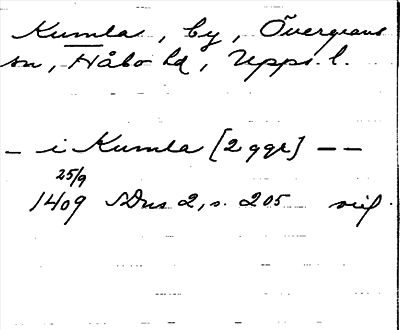 Kumla, by, Övergrans
sn, Håbo hd, Upps. l.
– i Kumla [2 ggr] – –
25/9
1409 SDns 2, s. 205 vid.